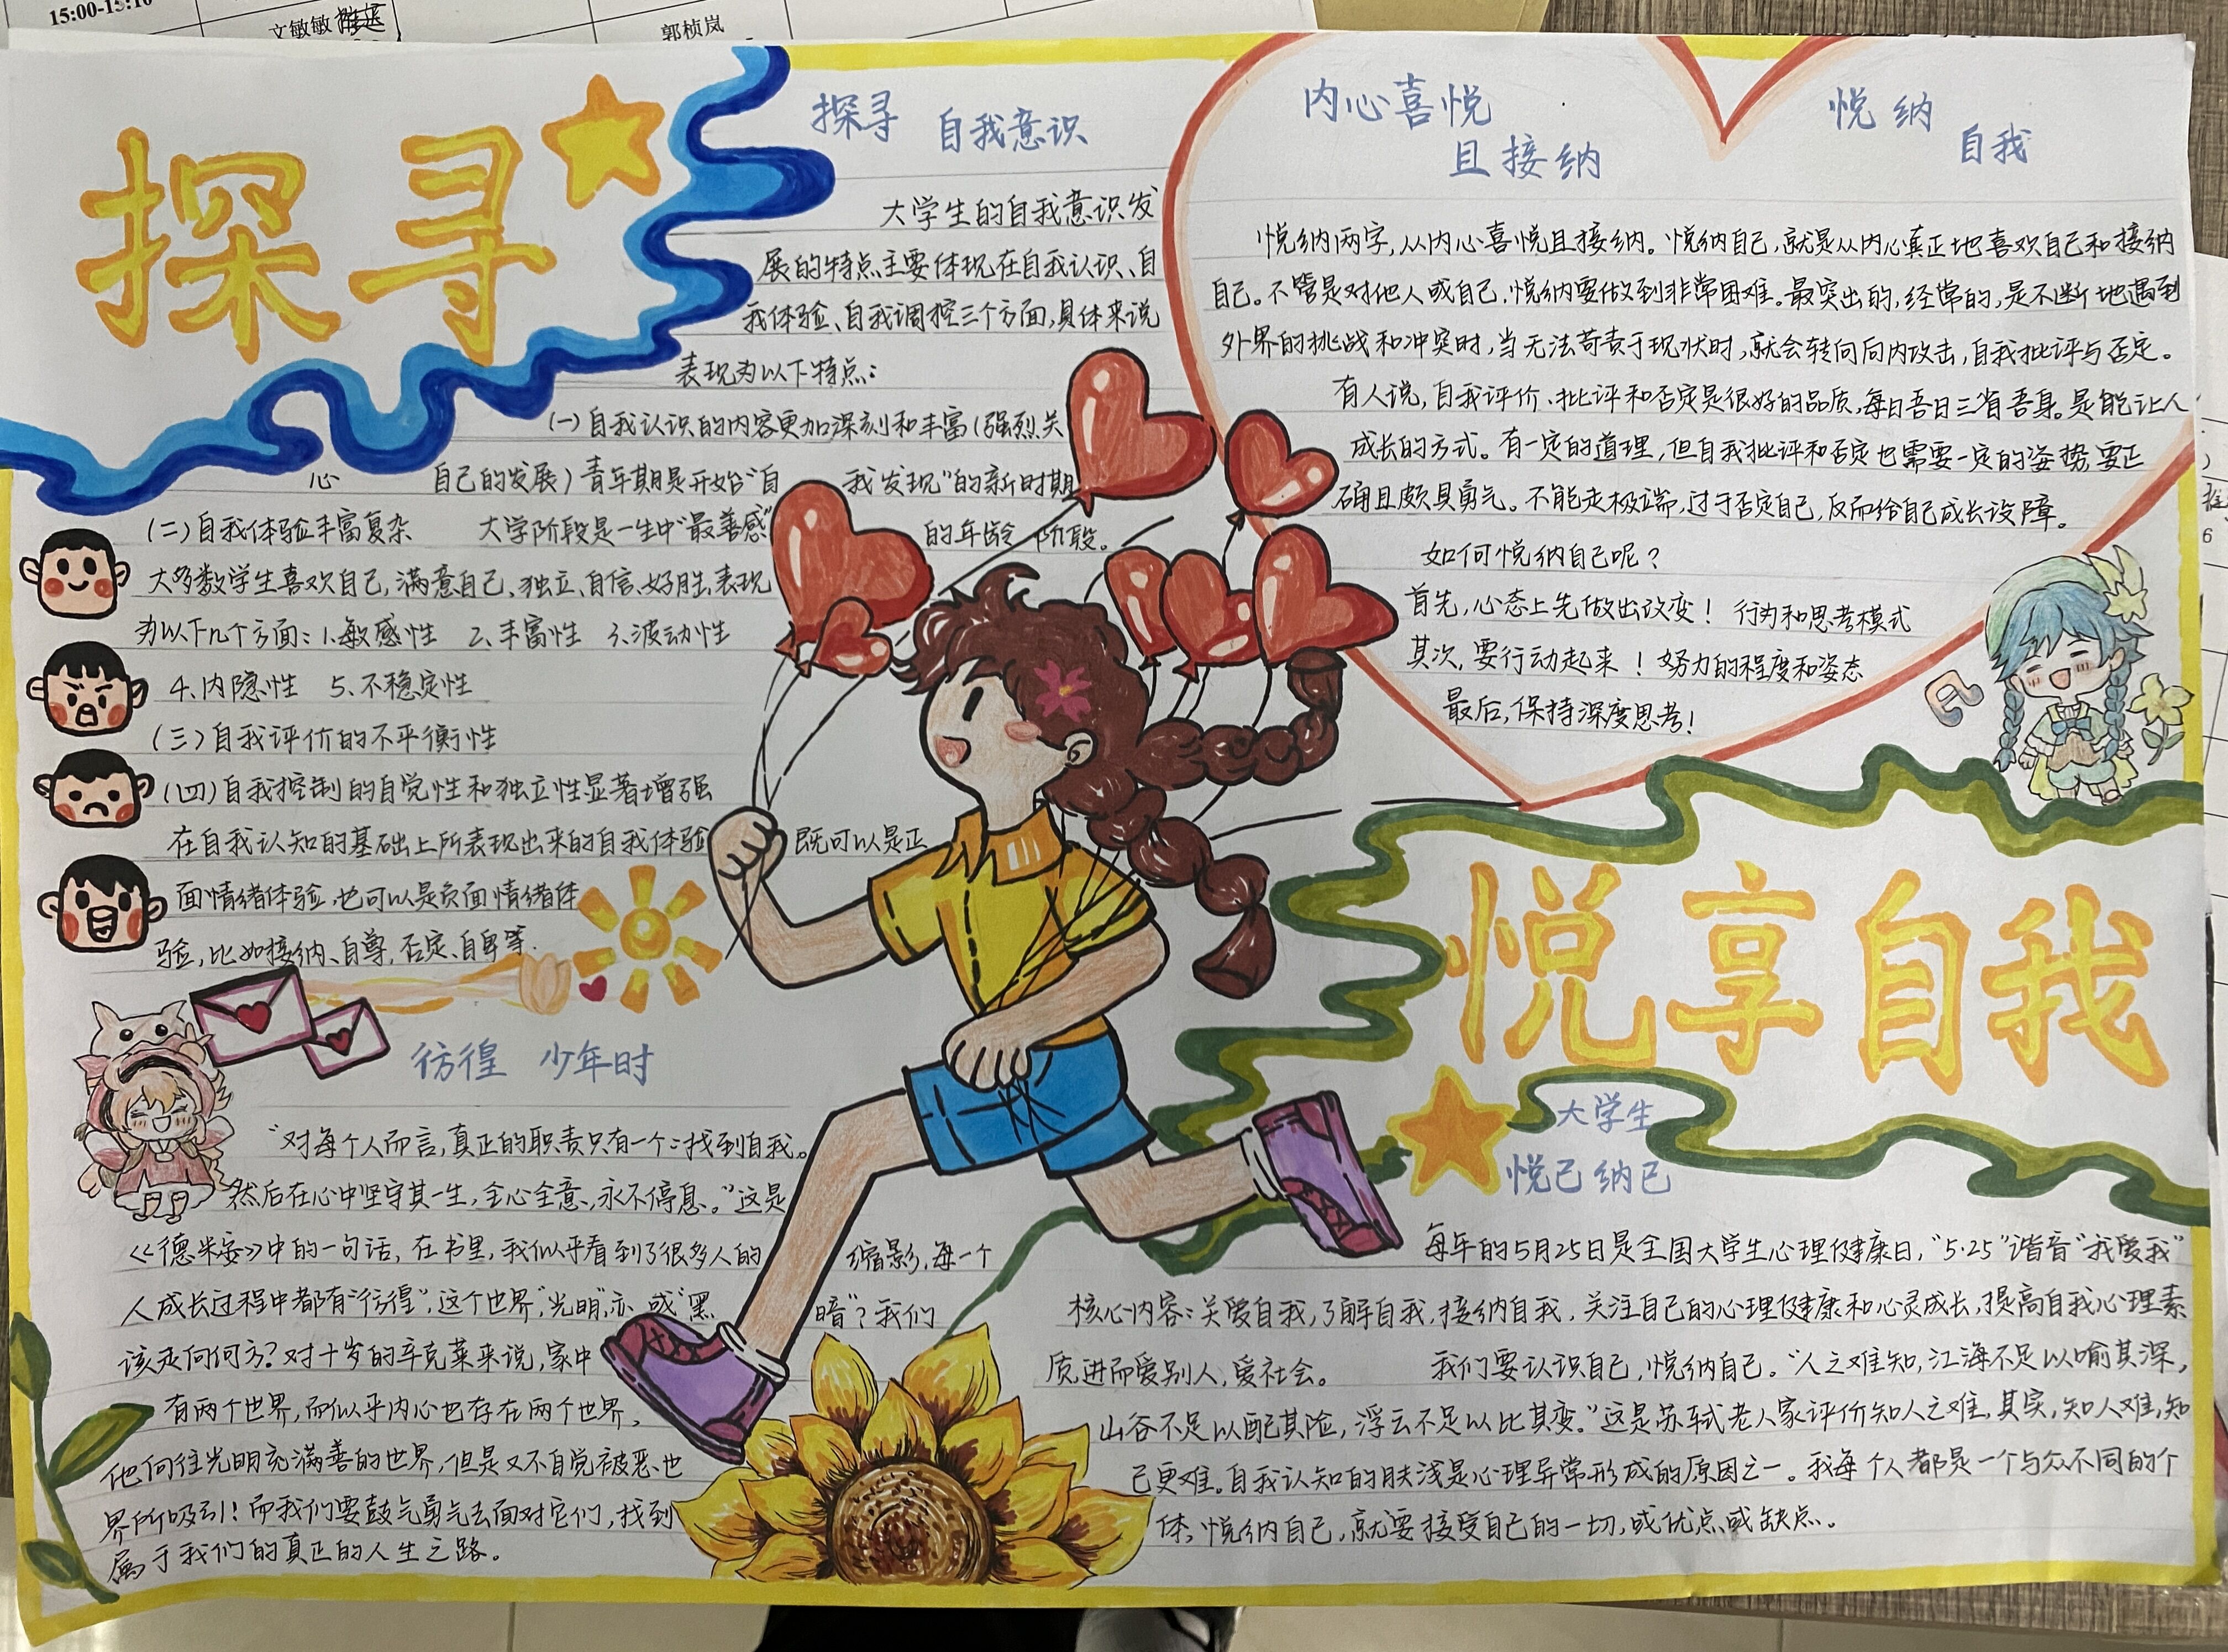 15:00-15:10
文敏敏
郭桢岚
探寻
探寻 自我意识
大学生的自我意识发
展的特点主要体现在自我认识、自
我体验、自我调控三个方面,具体来说
表现为以下特点:
(一)自我认识的内容更加深刻和丰富(强烈关
心 自己的发展)青年期是开始“自 我发现”的新时期
(二)自我体验丰富复杂 大学阶段是一生中“最善感” 的年龄 阶段。
大多数学生喜欢自己,满意自己、独立、自信、好胜,表现
为以下几个方面:1.敏感性 2.丰富性 3.波动性
4.内隐性 5.不稳定性
(三)自我评价的不平衡性
(四)自我控制的自觉性和独立性显著增强
在自我认知的基础上所表现出来的自我体验 既可以是正
面情绪体验,也可以是负面情绪体
验,比如接纳、自尊,否定、自卑等.
彷徨 少年时
“对每个人而言,真正的职责只有一个:找到自我。
然后在心中坚守其一生,全心全意,永不停息。”这是
《德米安》中的一句话,在书里,我们似乎看到了很多人的 缩影,每一个
人成长过程中都有“彷徨”,这个世界,“光明”亦或“黑 暗”?我们
该走向何方?对十岁的辛克莱来说,家中
有两个世界,而似乎内心也存在两个世界,
他向往光明充满善的世界,但是又不自觉被恶也
界所吸引!而我们要鼓气勇气去面对它们,找到
属于我们的真正的人生之路。
内心喜悦
且接纳
悦纳
自我
悦纳两字,从内心喜悦且接纳。悦纳自己,就是从内心真正地喜欢自己和接纳
自己。不管是对他人或自己,悦纳要做到非常困难。最突出的,经常的,是不断地遇到
外界的挑战和冲突时,当无法苛责于现状时,就会转向向内攻击,自我批评与否定。
有人说,自我评价、批评和否定是很好的品质,每日吾日三省吾身。是能让人
成长的方式。有一定的道理,但自我批评和否定也需要一定的姿势,要正
确且颇具勇气。不能走极端,过于否定自己,反而给自己成长设障。
如何悦纳自己呢?
首先,心态上先做出改变! 行为和思考模式
其次,要行动起来! 努力的程度和姿态
最后,保持深度思考!
悦享自我
大学生
悦己纳己
每年的5月25日是全国大学生心理健康日,“5·25”谐音“我爱我”
核心内容:关爱自我,了解自我,接纳自我,关注自己的心理健康和心灵成长,提高自我心理素
质,进而爱别人,爱社会。 我们要认识自己,悦纳自己。“人之难知,江海不足以喻其深,
山谷不足以配其险,浮云不足以比其变。”这是苏轼老人家评价知人之难,其实,知人难,知
己更难。自我认知的肤浅是心理异常形成的原因之一。我每个人都是一个与众不同的个
体,悦纳自己,就要接受自己的一切,或优点或缺点。